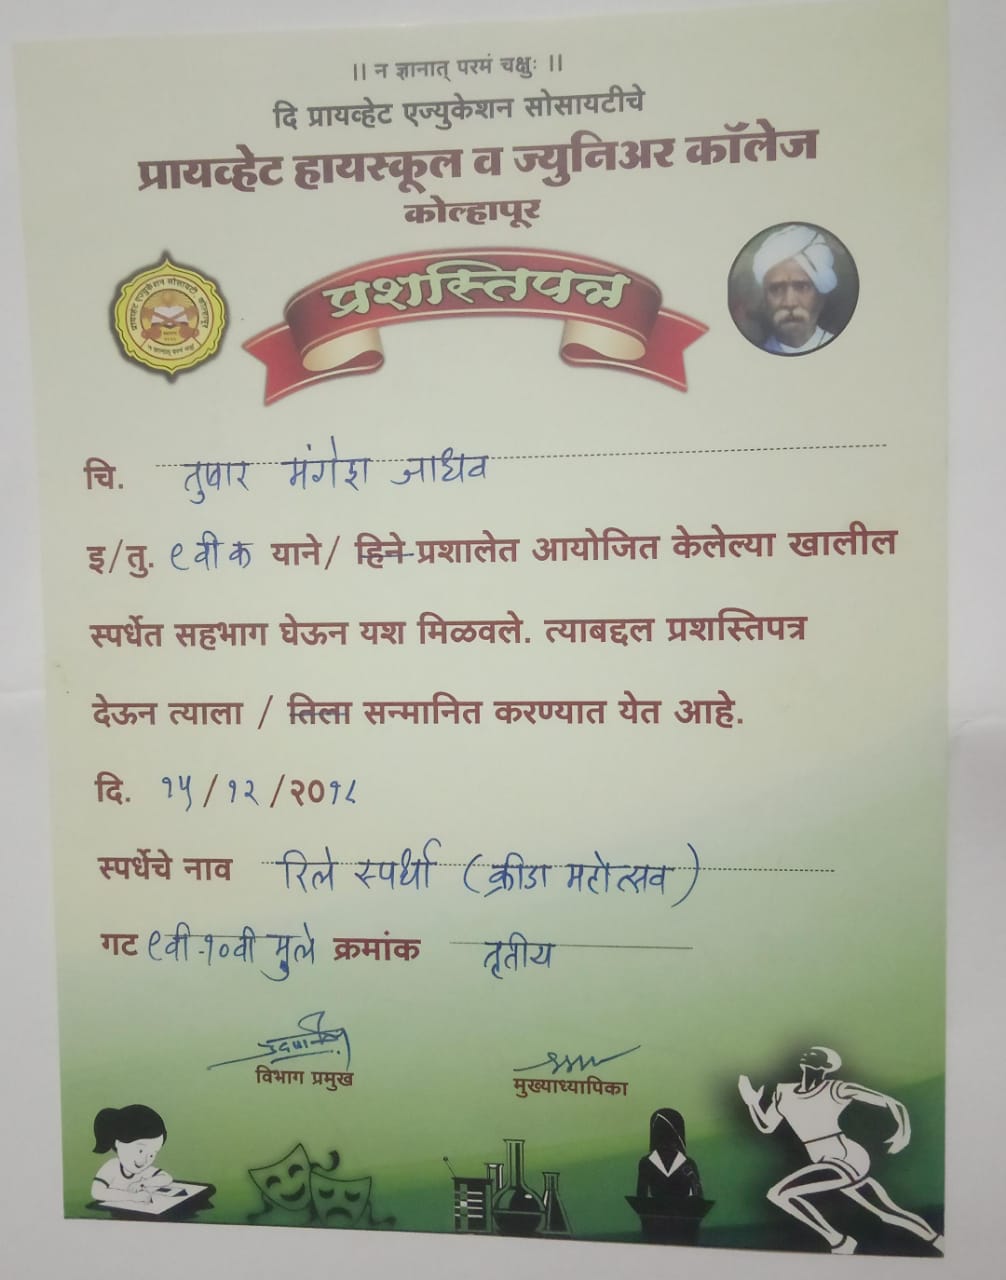 ।। न ज्ञानात् परमं चक्षुः ।।
दि प्रायव्हेट एज्युकेशन सोसायटीचे
प्रायव्हेट हायस्कूल व ज्युनिअर कॉलेज
कोल्हापूर
प्रशस्तिपत्र
चि. तुषार मंगेश जाधव
इ/तु. ९ वी क याने/ हिने प्रशालेत आयोजित केलेल्या खालील
स्पर्धेत सहभाग घेऊन यश मिळवले. त्याबद्दल प्रशस्तिपत्र
देऊन त्याला / तिला सन्मानित करण्यात येत आहे.
दि. १५/१२/२०१८
स्पर्धेचे नाव रिले स्पर्धा (क्रीडा महोत्सव)
गट ९वी-१०वी मुले क्रमांक तृतीय
विभाग प्रमुख मुख्याध्यापिका